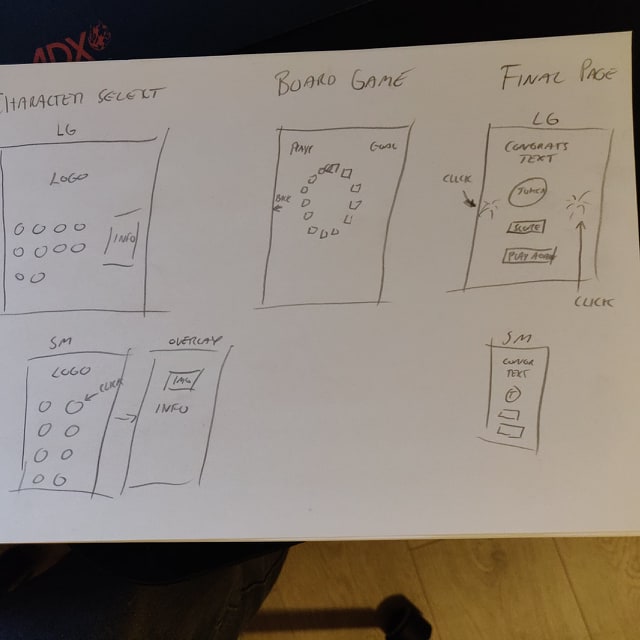 ADX
CHARACTER SELECT
LG
LOGO
INFO
SM
LOGO
CLICK
OVERLAY
IMG
INFO
BOARD GAME
GOAL
FINAL PAGE
LG
CONGRATS
TEXT
CLICK
SCORE
PLAY AGAIN
CLICK
SM
TEXT
T